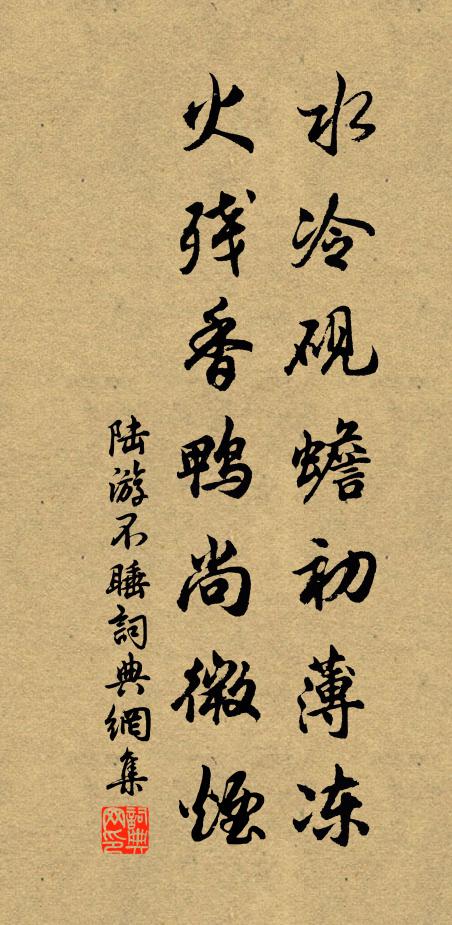 水冷砚蟾初薄冻
火残香鸭尚微烟
陆游不睡詞典網集
詞典網印